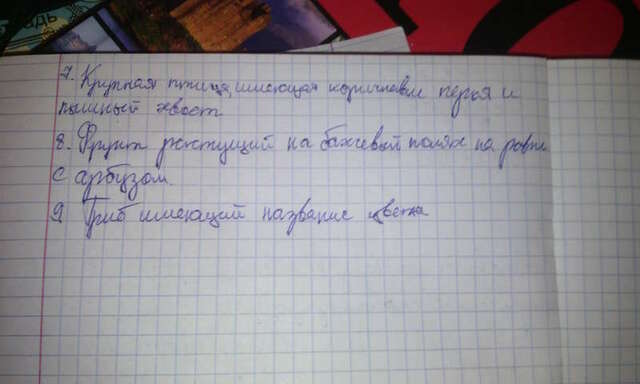 дь
7. Крупная птица, имеющая коричневые перья и
пышный хвост
8. Фрукт растущий на бахчевый полях на ровне
с арбузом.
9 Гриб имеющий название цвета